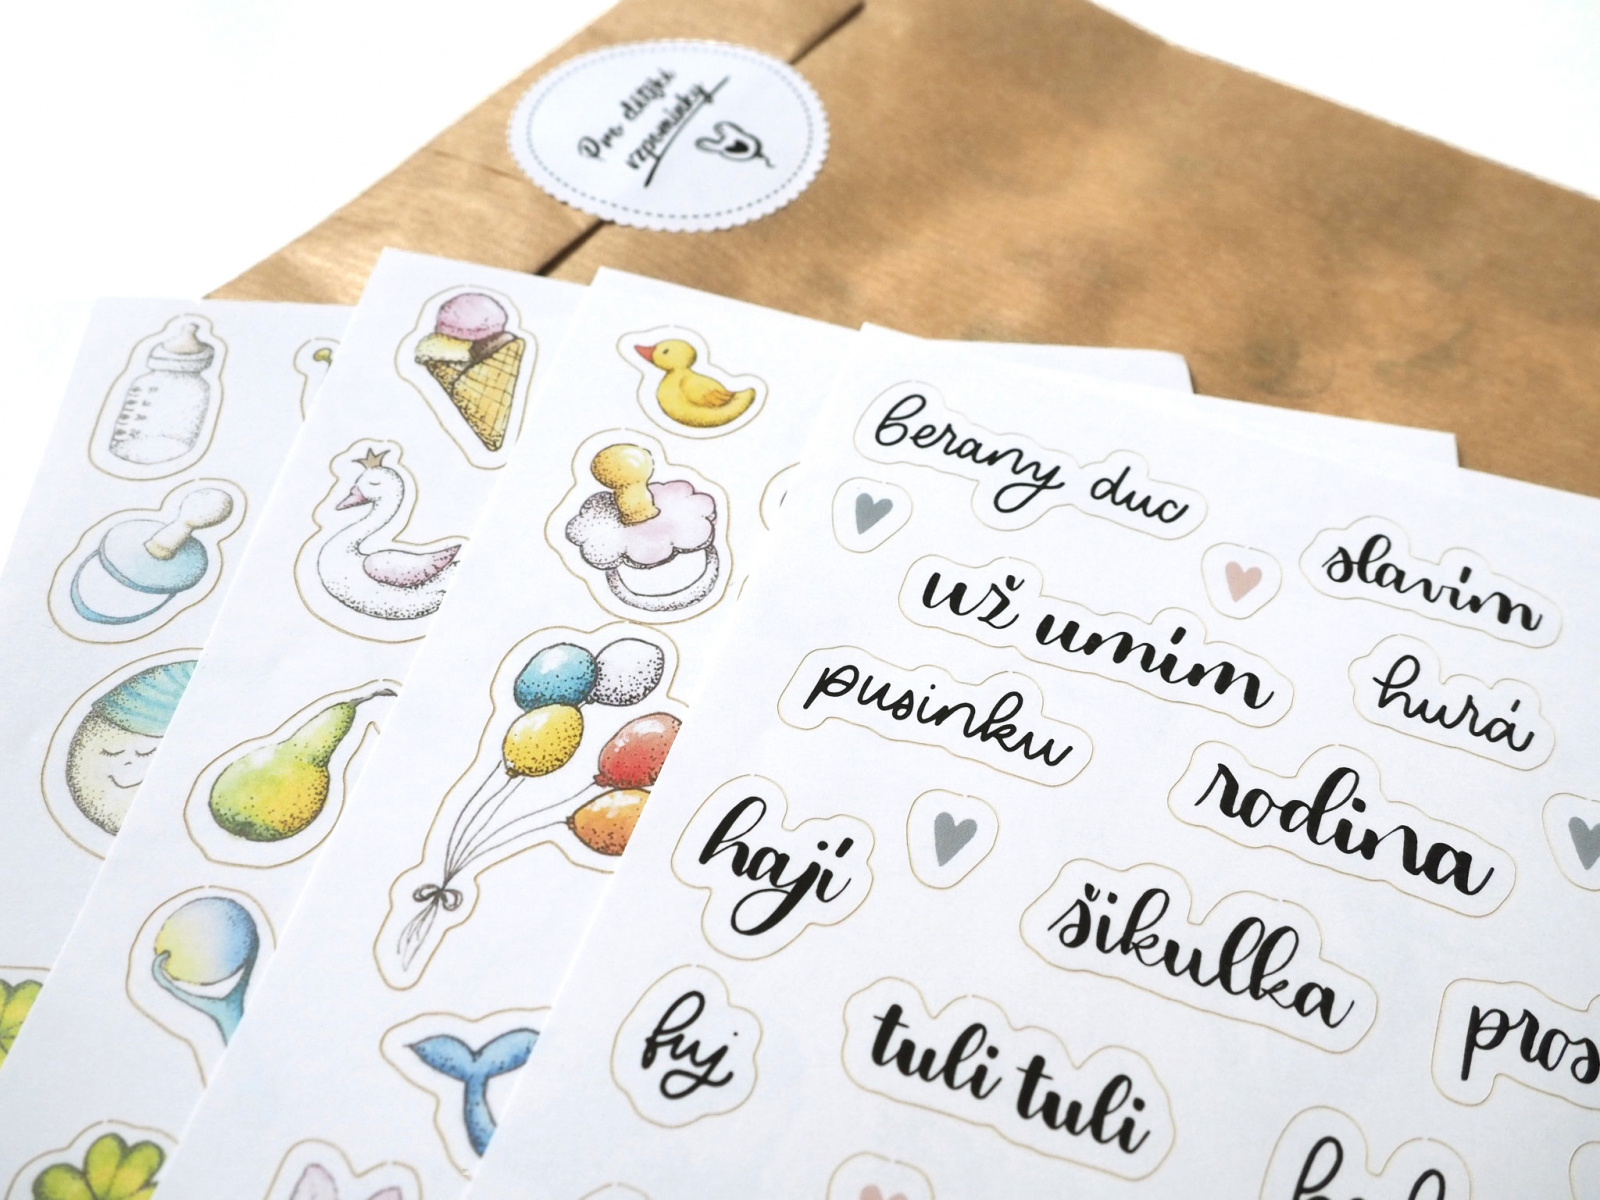 Pro dětské
vzpomínky
berany duc
slavím
už umím
hurá
pusinku
rodina
hají
šikulka
fuj
tuli tuli